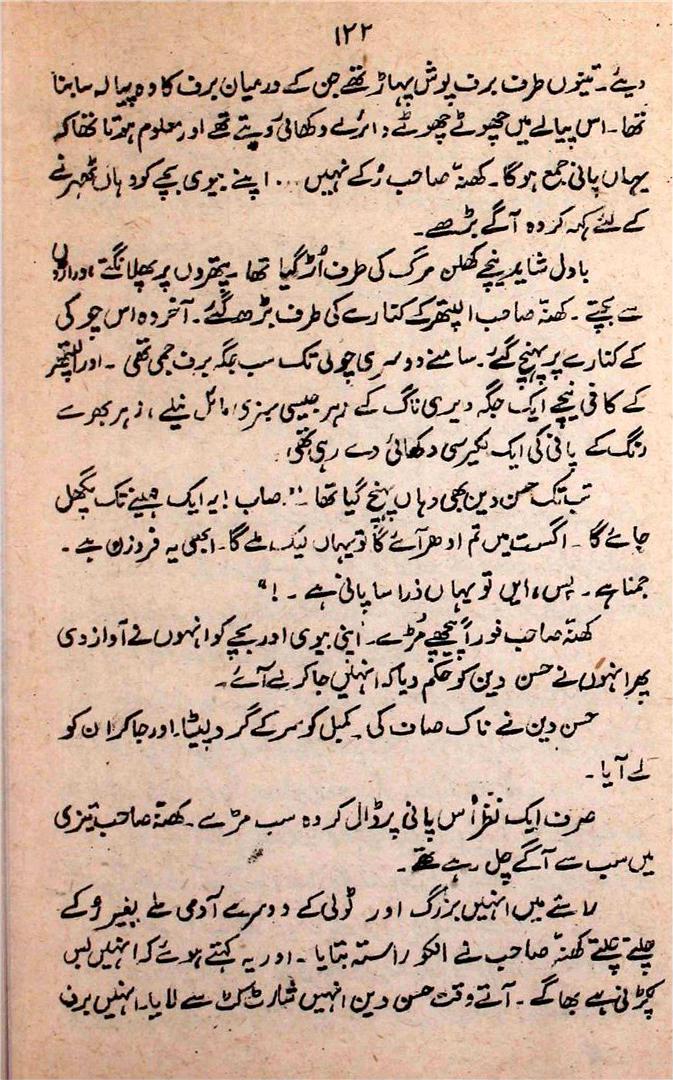 ۱۲۲
دیئے۔ تینوں طرف برف پوش پہاڑ تھے جن کے درمیان برف کا وہ پیالہ سا بنا
تھا۔ اس پیالے میں چھوٹے چھوٹے دائرے دکھائی دیتے تھے اور معلوم ہوتا تھا کہ
یہاں پانی جمع ہوگا۔ کھنّہ صاحب رُکے نہیں ... اپنے بیوی بچے کو وہاں ٹھہرنے
کے لئے کہہ کر وہ آگے بڑھے۔
بادل شاید نیچے کھلن مرگ کی طرف اُڑ گیا تھا۔ پتھروں پر پھلانگتے، دراڑوں
سے بچتے۔ کھنّہ صاحب الپتھر کے کنارے کی طرف بڑھ گئے۔ آخر وہ اس چوکی
کے کنارے پر پہنچ گئے۔ سامنے دوسری چوٹی تک سب جگہ برف جمی تھی۔ اور الپتھر
کے کافی نیچے ایک جگہ دیری ناگ کے زہر جیسی سبزی مائل نیلے، زہر بھرے
رنگ کے پانی کی ایک لکیر سی دکھائی دے رہی تھی۔
تب تک حسن دین بھی وہاں پہنچ گیا تھا۔ "صاب! یہ ایک مہینے تک پگھل
جائے گا۔ اگست میں تم ادھر آئے گا تو یہاں لیک ملے گا۔ ابھی یہ فروزن ہے۔
جمنا ہے۔ بس، ایں تو یہاں ذرا سا پانی ہے۔!"
کھنّہ صاحب فوراً پیچھے مُڑے۔ اپنی بیوی اور بچے کو انہوں نے آواز دی
پھر انہوں نے حسن دین کو حکم دیا کہ انہیں جا کر لے آئے۔
حسن دین نے ناک صاف کی۔ کمبل کو سر کے گرد لپیٹا۔ اور جا کر ان کو
لے آیا۔
صرف ایک نظر اُس پانی پر ڈال کر وہ سب مڑے۔ کھنّہ صاحب تیزی
میں سب سے آگے چل رہے تھے۔
راستے میں انہیں بزرگ اور ٹولی کے دوسرے آدمی ملے بغیر رُکے
چلتے چلتے کھنّہ صاحب نے انکو راستہ بتایا۔ اور یہ کہتے ہوئے کہ انہیں بس
پکڑنی ہے بھاگے۔ آتے وقت حسن دین انہیں شارٹ کٹ سے لایا۔ انہیں برف